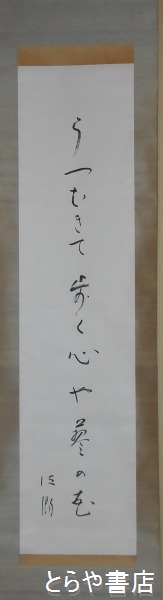 うつむきて歩く心や蓼の花
とらや書店